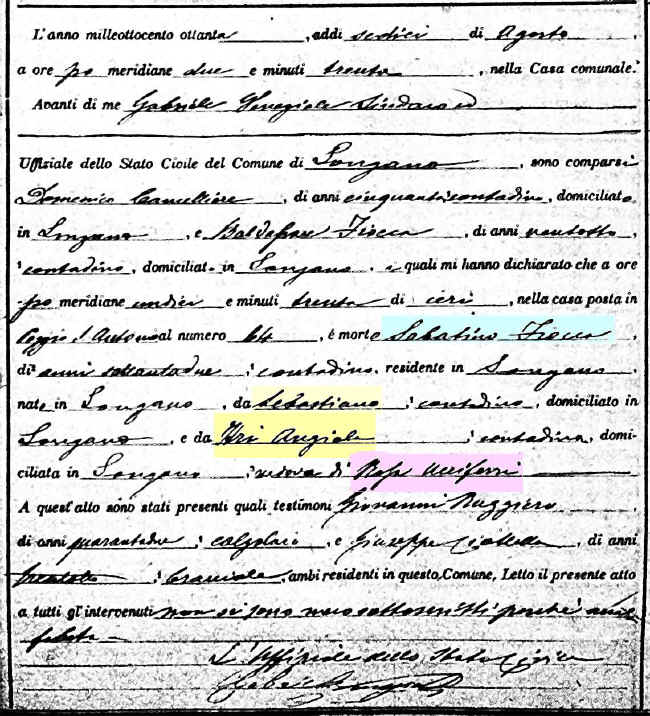 L'anno milleottocento ottanta, addì sedici di Agosto,
a ore po meridiane due e minuti trenta, nella Casa comunale.
Avanti di me Gabriele Sindaco
Uffiziale dello Stato Civile del Comune di Longano, sono comparsi
Domenico, di anni cinquanta contadino, domiciliato
in Longano, e Baldassare Fiocca, di anni ventotto,
contadino, domiciliato in Longano, i quali mi hanno dichiarato che a ore
po meridiane undici e minuti trenta di ieri, nella casa posta in
al numero 64, è morto Sabatino Fiocca,
di anni settantadue, contadino, residente in Longano
nato in Longano, da Sebastiano, contadino, domiciliato in
Longano, e da Uri Angiola, contadina, domi-
ciliata in Longano, vedovo di Rosa Acciferri
A quest'atto sono stati presenti quali testimoni Giovanni Ruggiero,
di anni quarantadue, calzolaio, e Giuseppe, di anni
trentotto, bracciale, ambi residenti in questo Comune. Letto il presente atto
a tutti gl'intervenuti non si sono meco sottoscritti perchè anal
fabeta
L'Uffiziale dello Stato Civile